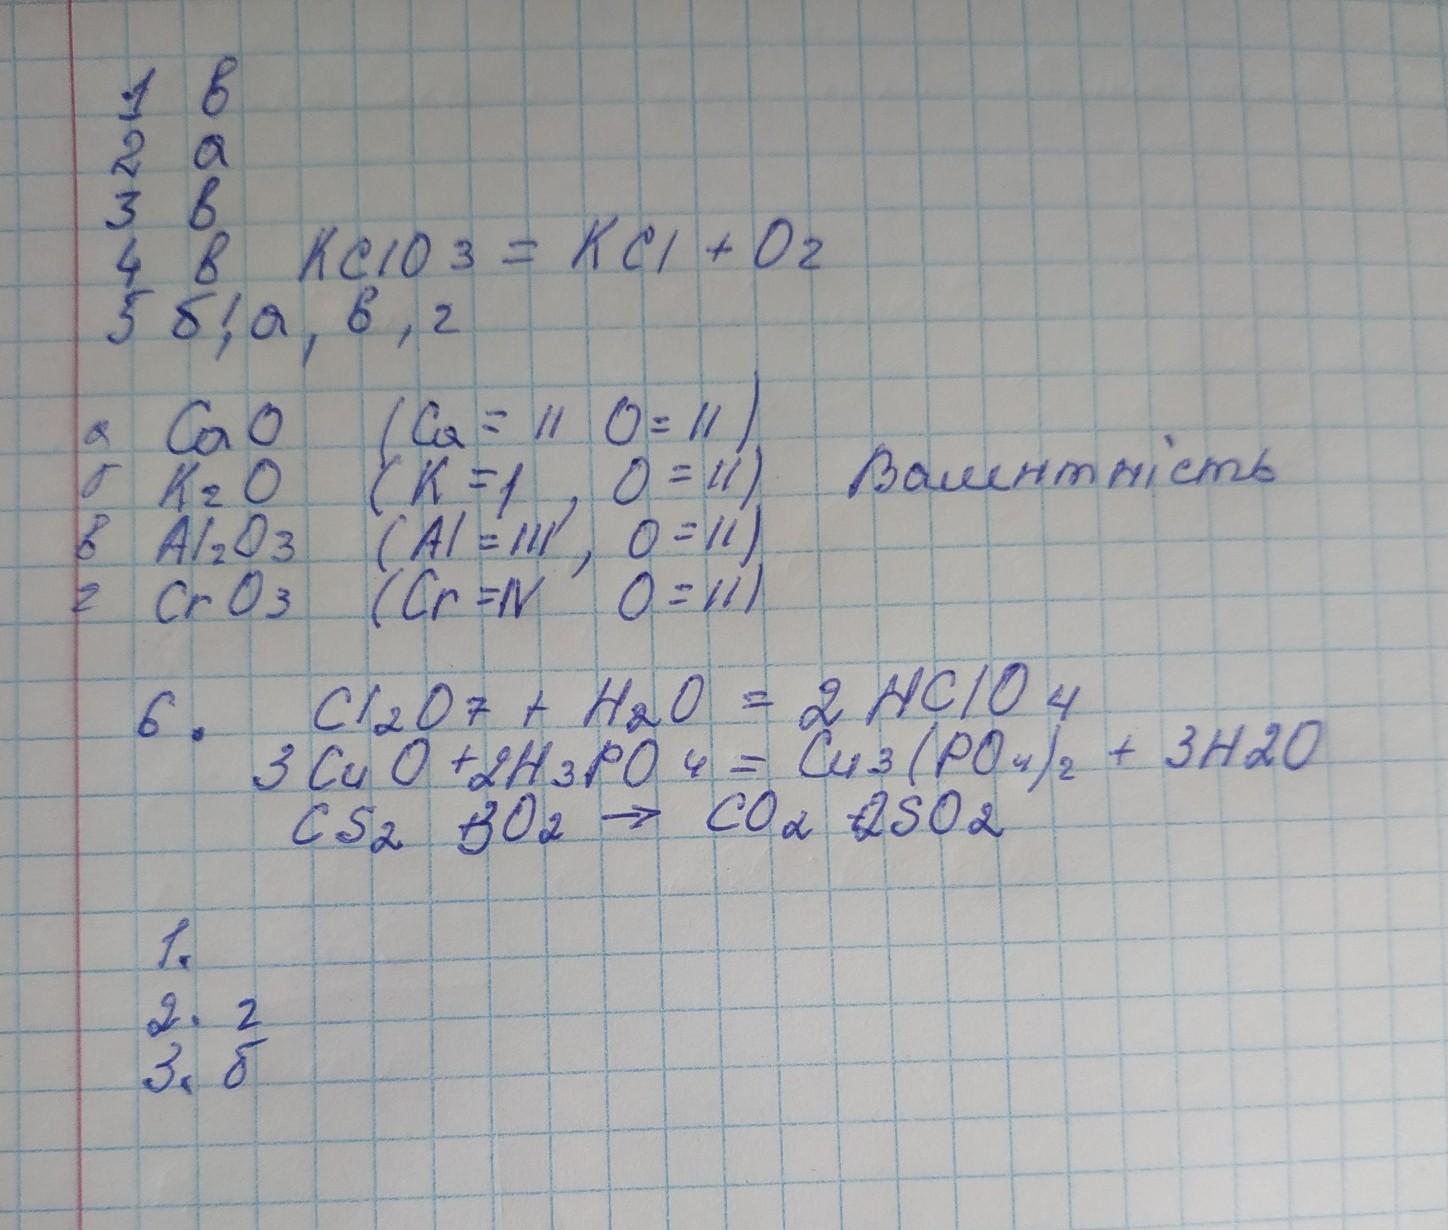 1 в
2 а
3 в
4 в KClO3 = KCl + O2
5 б, а, в, г
а CaO (Ca = II O = II)
б K2O (K = I, O = II)
Валентність
в Al2O3 (Al = III, O = II)
г CrO3 (Cr = IV O = II)
6. Cl2O7 + H2O = 2 HClO4
3 CuO + 2H3PO4 = Cu3(PO4)2 + 3H2O
CS2 + 3O2 → CO2 + 2SO2
1.
2. г
3. б